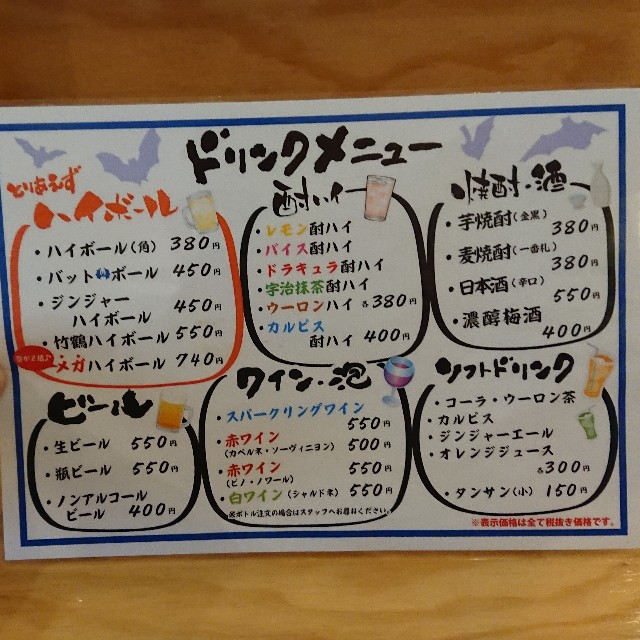 ドリンクメニュー
とりあえず
ハイボール
・ハイボール(角) 380円
・バットボール 450円
・ジンジャー
ハイボール 450円
・竹鶴ハイボール 550円
・メガハイボール 740円
酎ハイ
・レモン酎ハイ
・バイス酎ハイ
・ドラキュラ酎ハイ
・宇治抹茶酎ハイ
・ウーロンハイ 各380円
・カルピス
酎ハイ 400円
焼酎・酒
・芋焼酎(金黒) 380円
・麦焼酎(一番札) 380円
・日本酒(辛口) 550円
・濃醇梅酒 400円
ビール
・生ビール 550円
・瓶ビール 550円
・ノンアルコール
ビール 400円
ワイン・泡
・スパークリングワイン
550円
・赤ワイン 500円
(カベルネ・ソーヴィニヨン)
・赤ワイン 550円
(ピノ・ノワール)
・白ワイン(シャルドネ) 550円
※ボトル注文の場合はスタッフへお尋ねください。
ソフトドリンク
・コーラ・ウーロン茶
・カルピス
・ジンジャーエール
・オレンジジュース
各300円
・タンサン(小) 150円
※表示価格は全て税抜き価格です。